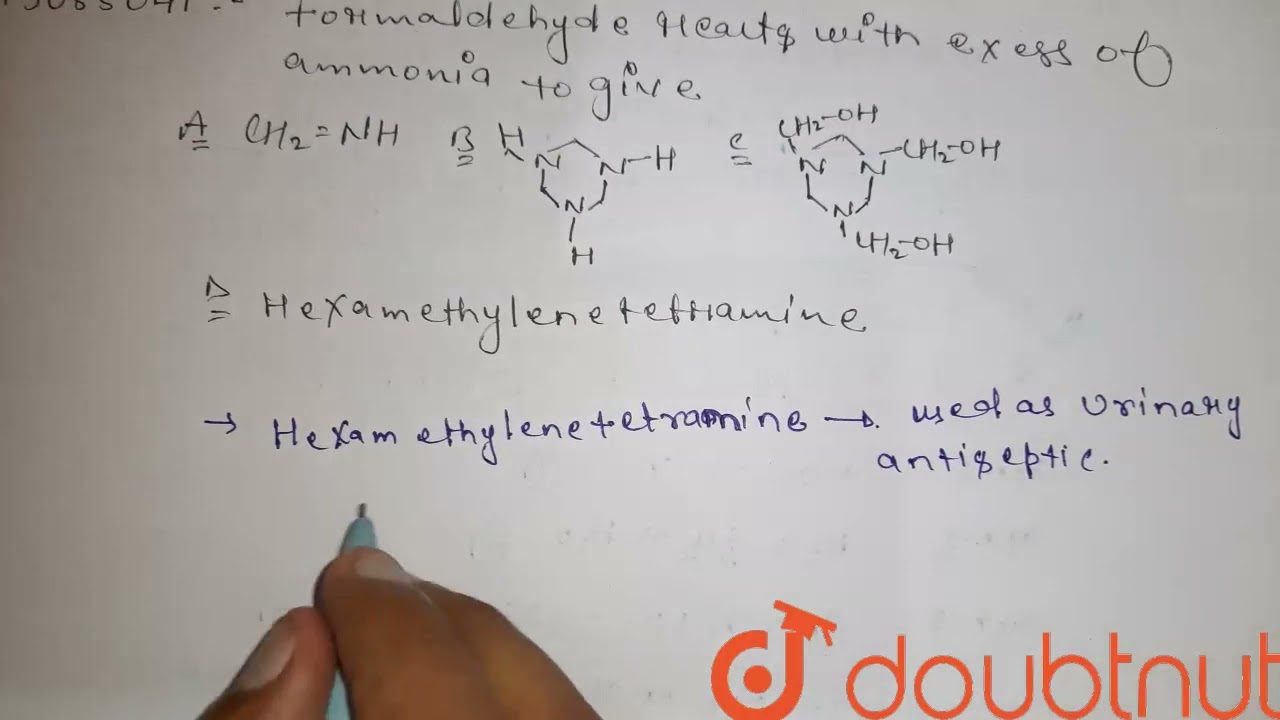 formaldehyde reacts with exess of
ammonia to give
A CH2=NH B H N N-H N H C CH2-OH N N-CH2-OH N CH2-OH
D Hexamethylenetetramine
→ Hexamethylenetetramine → used as Urinary
antiseptic.
doubtnut